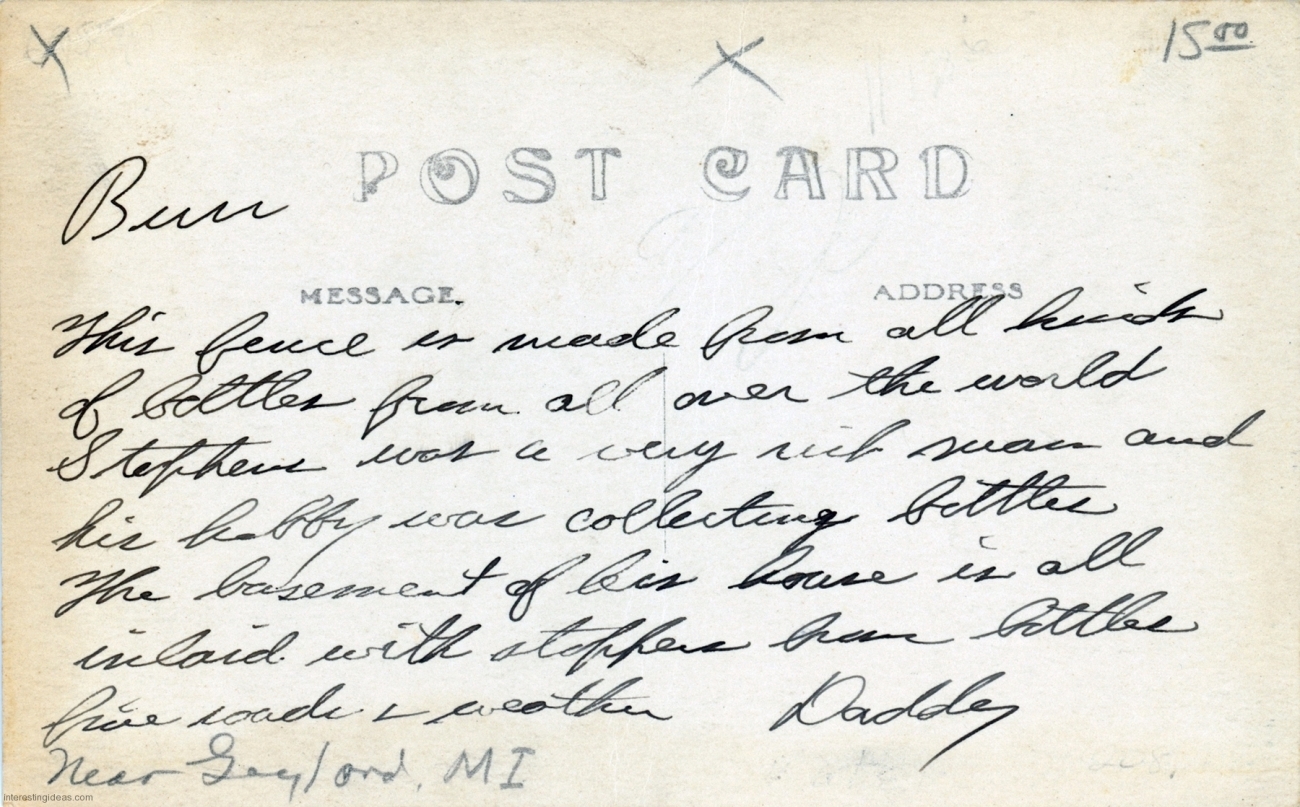 15 00
POST CARD
Burr
MESSAGE.
ADDRESS
This fence is made from all kinds
of bottles from all over the world
Stephens was a very rich man and
his hobby was collecting bottles
The basement of his house is all
inlaid with stoppers from bottles
fine roads & weather Daddy
Near Gaylord, MI
interestingideas.com